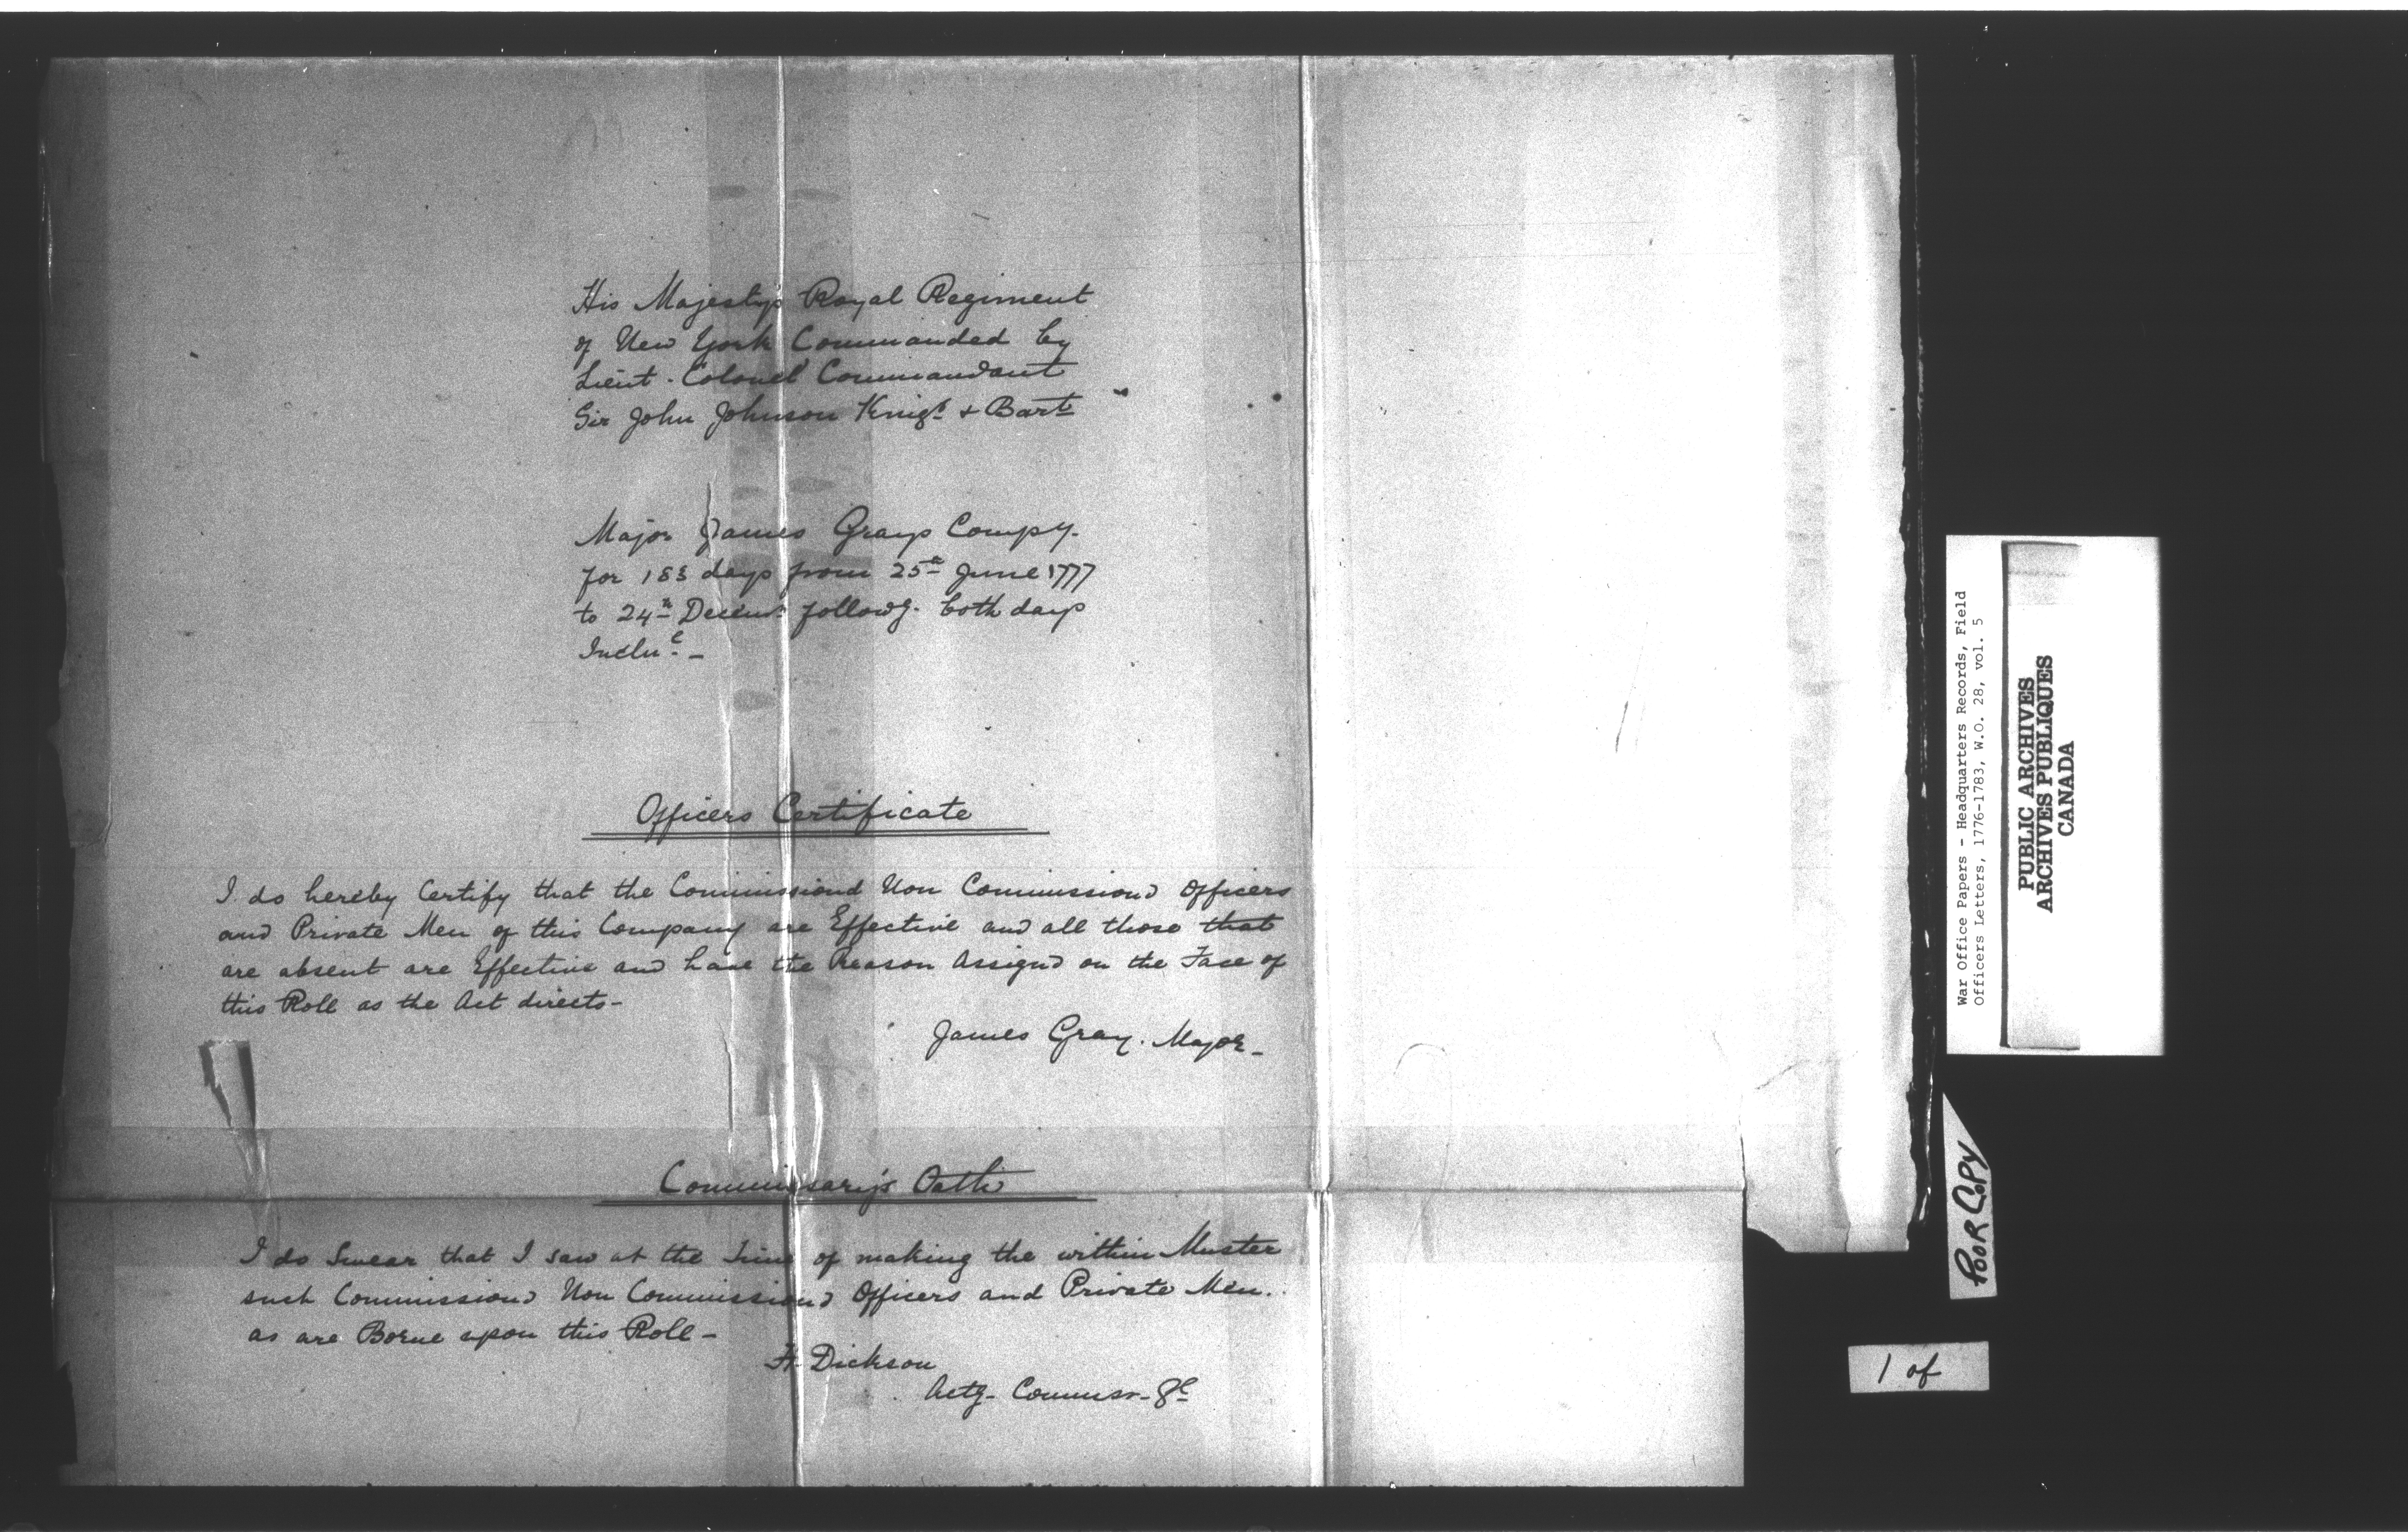 His Majestys Royal Regiment
of New York Commanded by
Lieut. Colonel Commandant
Sir John Johnson Knigt & Bart
Major James Grays Compy.
for 183 days from 25th June 1777
to 24th Decemr followg. both days
Inclue. -
Officers Certificate
I do hereby Certify that the Commissiond Non Commissiond Officers
and Private Men of this Company are Effective and all those that
are absent are Effective and have the Reason Assignd on the Face of
this Roll as the Act directs -
James Gray. Major -
Commissary's Oath
I do Swear that I saw at the Time of making the within Muster
such Commissiond Non Commissiond Officers and Private Men..
as are Borne upon this Roll -
H. Dickson
Actg - Commissr -
War Office Papers - Headquarters Records, Field
Officers Letters, 1776-1783, W.O. 28, vol. 5
PUBLIC ARCHIVES
ARCHIVES PUBLIQUES
CANADA
POOR COPY
1 of